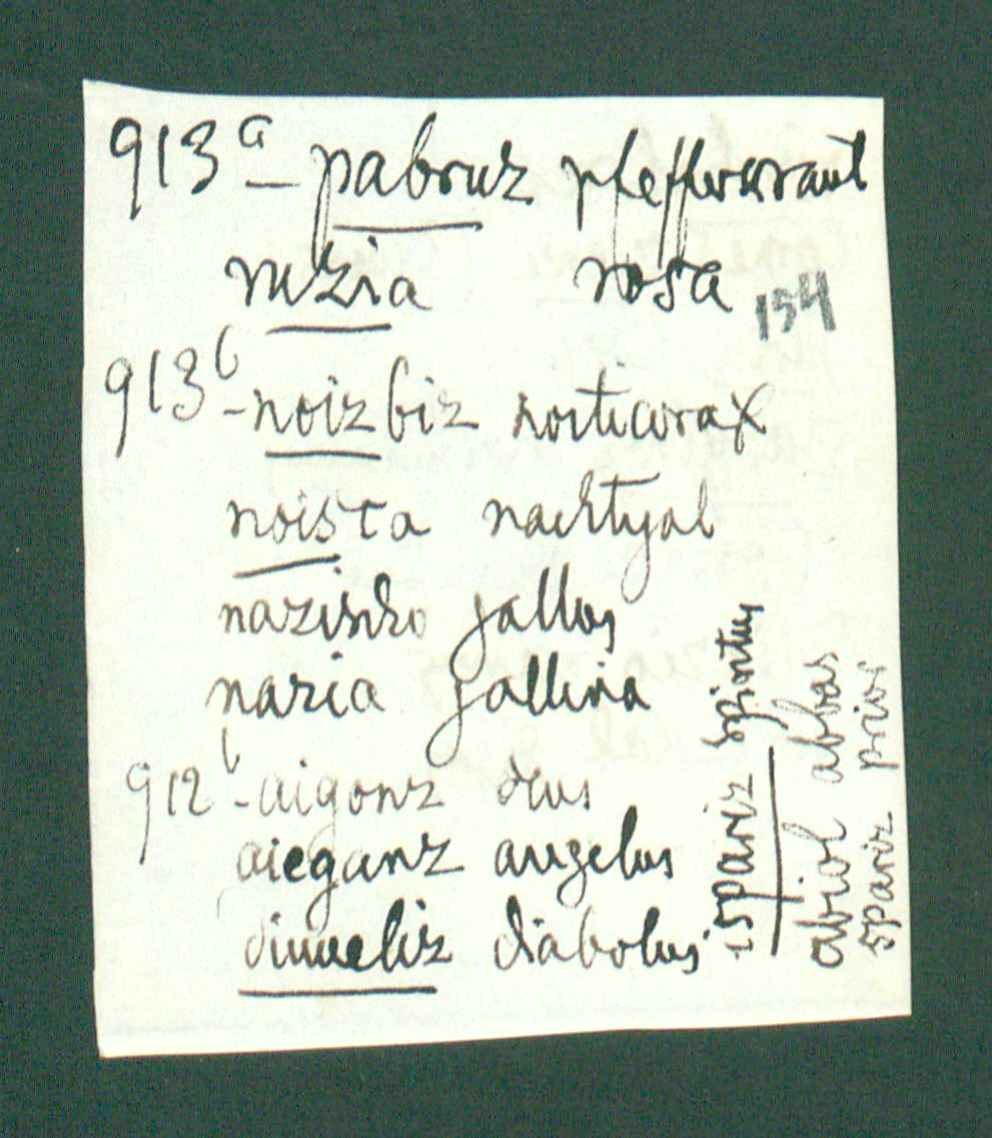 913a – pabruz pfeffercraut
ruzia rosa
154
913b - noizbiz nocticorax
noisca nachtgal
nazischo gallus
nazia gallina
912b - aigonz deus
aieganz angelus
diuueliz diabolus
ispariz spiritus
abiol abbas
spariz prior